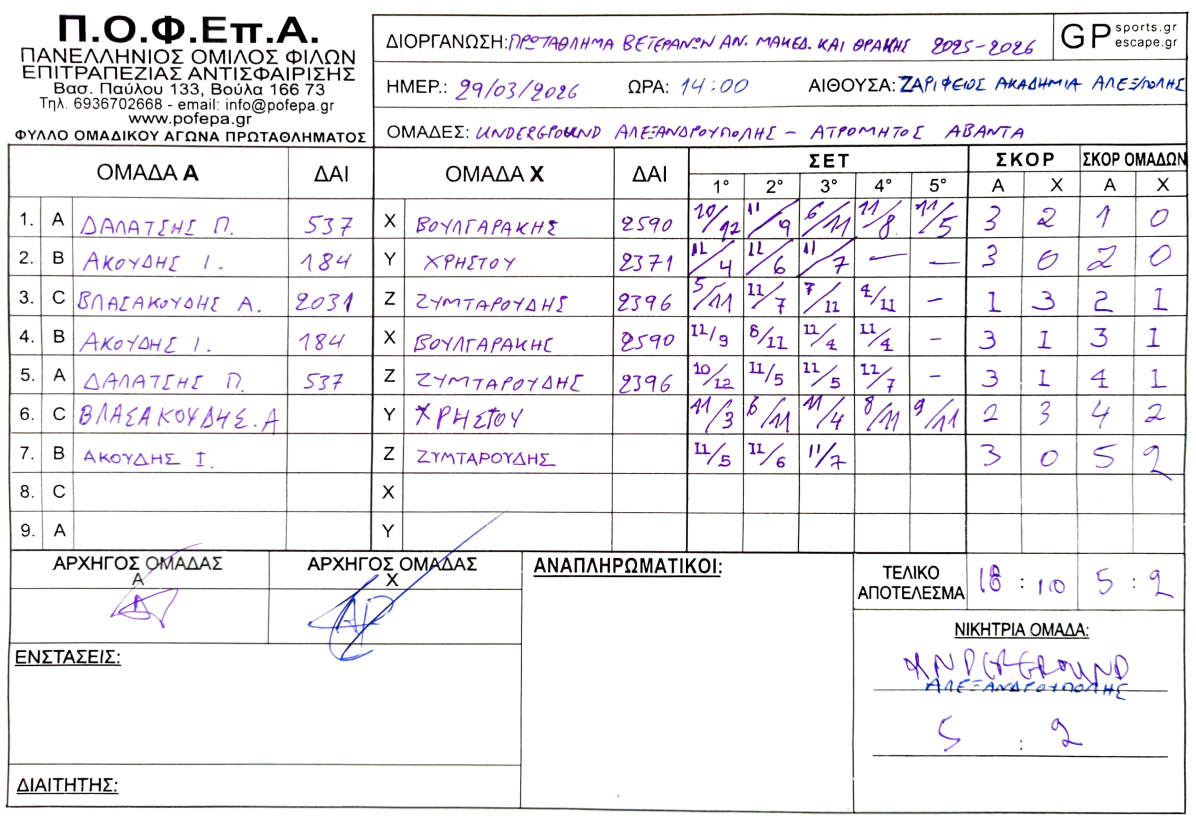 Π.Ο.Φ.Επ.Α.
ΠΑΝΕΛΛΗΝΙΟΣ ΟΜΙΛΟΣ ΦΙΛΩΝ
ΕΠΙΤΡΑΠΕΖΙΑΣ ΑΝΤΙΣΦΑΙΡΙΣΗΣ
Βασ. Παύλου 133, Βούλα 166 73
Τηλ. 6936702668 - email: info@pofepa.gr
www.pofepa.gr
ΦΥΛΛΟ ΟΜΑΔΙΚΟΥ ΑΓΩΝΑ ΠΡΩΤΑΘΛΗΜΑΤΟΣ
ΔΙΟΡΓΑΝΩΣΗ: ΠΡΩΤΑΘΛΗΜΑ ΒΕΤΕΡΑΝΩΝ ΑΝ. ΜΑΚΕΔ. ΚΑΙ ΘΡΑΚΗΣ 2025-2026
GP sports.gr escape.gr
ΗΜΕΡ.: 29/03/2026 ΩΡΑ: 14:00 ΑΙΘΟΥΣΑ: ΖΑΡΙΦΕΙΟΣ ΑΚΑΔΗΜΙΑ ΑΛΕΞ/ΠΟΛΗΣ
ΟΜΑΔΕΣ: UNDERGROUND ΑΛΕΞΑΝΔΡΟΥΠΟΛΗΣ - ΑΤΡΟΜΗΤΟΣ ΑΒΑΝΤΑ
ΟΜΑΔΑ Α ΔΑΙ ΟΜΑΔΑ Χ ΔΑΙ ΣΕΤ ΣΚΟΡ ΣΚΟΡ ΟΜΑΔΩΝ
1° 2° 3° 4° 5° Α Χ Α Χ
1. A ΔΑΛΑΤΣΗΣ Π. 537 X ΒΟΥΛΓΑΡΑΚΗΣ 2590 10/12 11/9 6/11 11/8 11/5 3 2 1 0
2. B ΑΚΟΥΔΗΣ Ι. 184 Y ΧΡΗΣΤΟΥ 2371 11/4 11/6 11/7 — — 3 0 2 0
3. C ΒΛΑΣΑΚΟΥΔΗΣ Α. 2031 Z ΖΥΜΤΑΡΟΥΔΗΣ 2396 5/11 11/7 7/11 4/11 - 1 3 2 1
4. B ΑΚΟΥΔΗΣ Ι. 184 X ΒΟΥΛΓΑΡΑΚΗΣ 2590 11/9 8/11 11/4 11/4 - 3 1 3 1
5. A ΔΑΛΑΤΣΗΣ Π. 537 Z ΖΥΜΤΑΡΟΥΔΗΣ 2396 10/12 11/5 11/5 11/7 - 3 1 4 1
6. C ΒΛΑΣΑΚΟΥΔΗΣ.Α Y ΧΡΗΣΤΟΥ 11/3 6/11 11/4 8/11 9/11 2 3 4 2
7. B ΑΚΟΥΔΗΣ Ι. Z ΖΥΜΤΑΡΟΥΔΗΣ 11/5 11/6 11/7 3 0 5 2
8. C X
9. A Y
ΑΡΧΗΓΟΣ ΟΜΑΔΑΣ Α ΑΡΧΗΓΟΣ ΟΜΑΔΑΣ Χ ΑΝΑΠΛΗΡΩΜΑΤΙΚΟΙ: ΤΕΛΙΚΟ ΑΠΟΤΕΛΕΣΜΑ 18 : 10 5 : 2
ΝΙΚΗΤΡΙΑ ΟΜΑΔΑ:
UNDERGROUND
ΑΛΕΞΑΝΔΡΟΥΠΟΛΗΣ
5 : 2
ΕΝΣΤΑΣΕΙΣ:
ΔΙΑΙΤΗΤΗΣ: